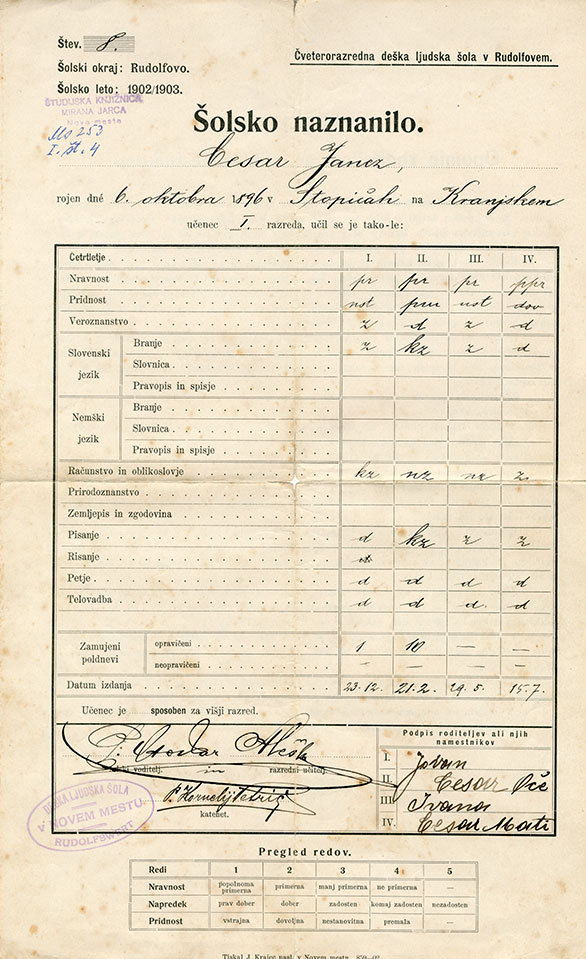 Štev. 8.
Čveterorazredna deška ljudska šola v Rudolfovem.
Šolski okraj: Rudolfovo.
Šolsko leto: 1902/1903.
ŠTUDIJSKA KNJIŽNICA
MIRANA JARCA
Novo mesto
Ms 253
I. št. 4
Šolsko naznanilo.
Cesar Janez,
rojen dné 6. oktobra 1896 v Stopičah na Kranjskem
učenec I. razreda, učil se je tako-le:
Četrtletje I. II. III. IV.
Nravnost pr pr pr ppr
Pridnost nst pm nst dov
Veroznanstvo z d z d
Slovenski jezik
Branje z kz z d
Slovnica
Pravopis in spisje
Nemški jezik
Branje
Slovnica
Pravopis in spisje
Računstvo in oblikoslovje kz nz nz z
Prirodoznanstvo
Zemljepis in zgodovina
Pisanje d kz z z
Risanje d
Petje d d d d
Telovadba d d d d
Zamujeni poldnevi
opravičeni 1 10 — —
neopravičeni — — — —
Datum izdanja 23.12. 21.2. 29.5. 15.7.
Učenec je sposoben za višji razred.
Podpis roditeljev ali njih namestnikov
šolski voditelj. in razredni učitelj.
P. Kornelij Petrič
katehet.
I. Jovan
II. Cesar Oče
III. Ivana
IV. Cesar Mati
DEŠKA LJUDSKA ŠOLA
v NOVEM MESTU
RUDOLFSWERT
Pregled redov.
Redi 1 2 3 4 5
Nravnost popolnoma primerna primerna manj primerna ne primerna —
Napredek prav dober dober zadosten komaj zadosten nezadosten
Pridnost vstrajna dovoljna nestanovitna premala —
Tiskal J. Krajec nasl. v Novem mestu. 850—02